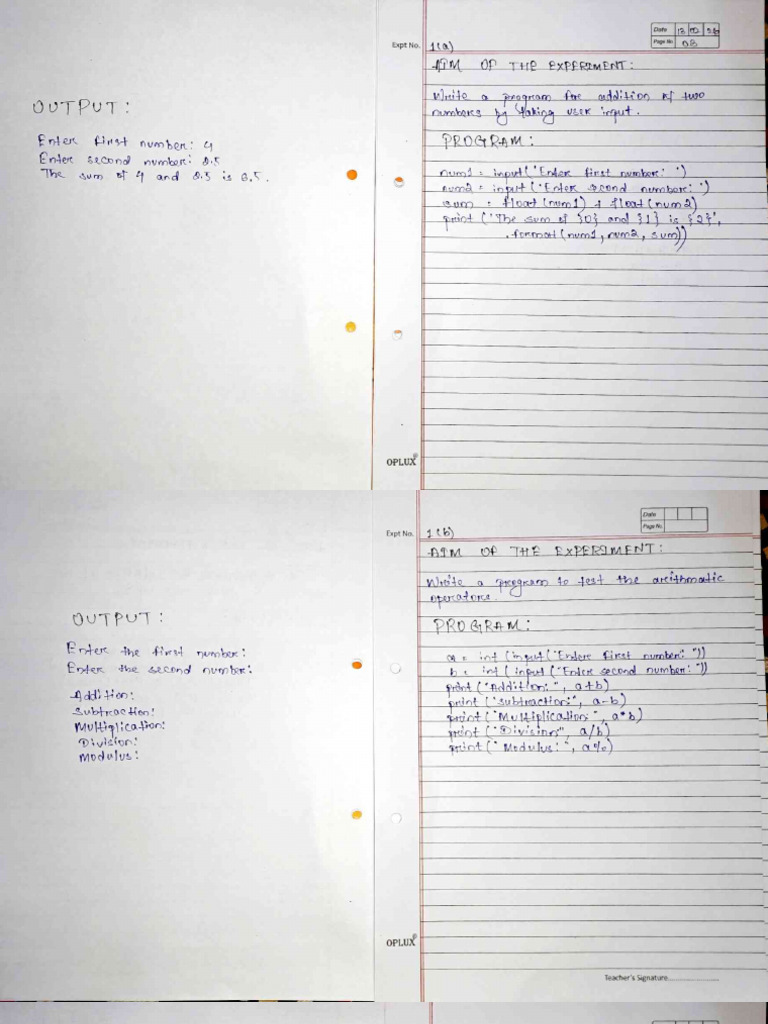 OUTPUT:
Enter first number: 4
Enter second number: 2.5
The sum of 4 and 2.5 is 6.5.
Date
Page No. 03
Expt No. 1(a)
AIM OF THE EXPERIMENT:
Write a program for addition of two
numbers by taking user input.
PROGRAM:
num1 = input('Enter first number: ')
num2 = input('Enter second number: ')
sum = float(num1) + float(num2)
print ('The sum of {0} and {1} is {2}',
.format(num1, num2, sum))
OPLUX
OUTPUT:
Enter the first number:
Enter the second number:
Addition:
Subtraction:
Multiplication:
Division:
Modulus:
Date
Page No.
Expt No. 1(b)
AIM OF THE EXPERIMENT:
Write a program to test the arithmatic
operators.
PROGRAM:
a = int (input("Enter first number: "))
b = int (input("Enter second number: "))
print ("Addition: ", a+b)
print ("subtraction:", a-b)
print ("Multiplication: ", a*b)
print ("Division", a/b)
print (" Modulus: ", a%)
OPLUX
Teacher's Signature